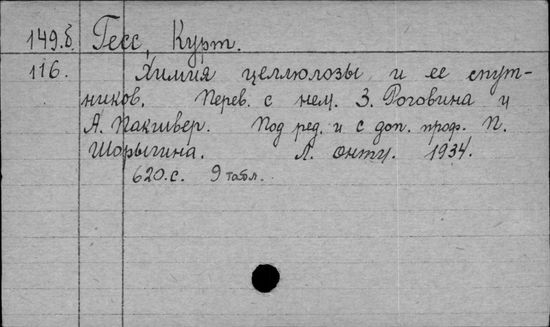 149.б. Гесс, Курт.
116. Химия целлюлозы и ее спут-
ников. Перев. с нем. З. Роговина и
А. Пакшвер. Под ред. и с доп. проф. П.
Шорыгина. Л. Онту. 1934.
620.с. 9 табл.